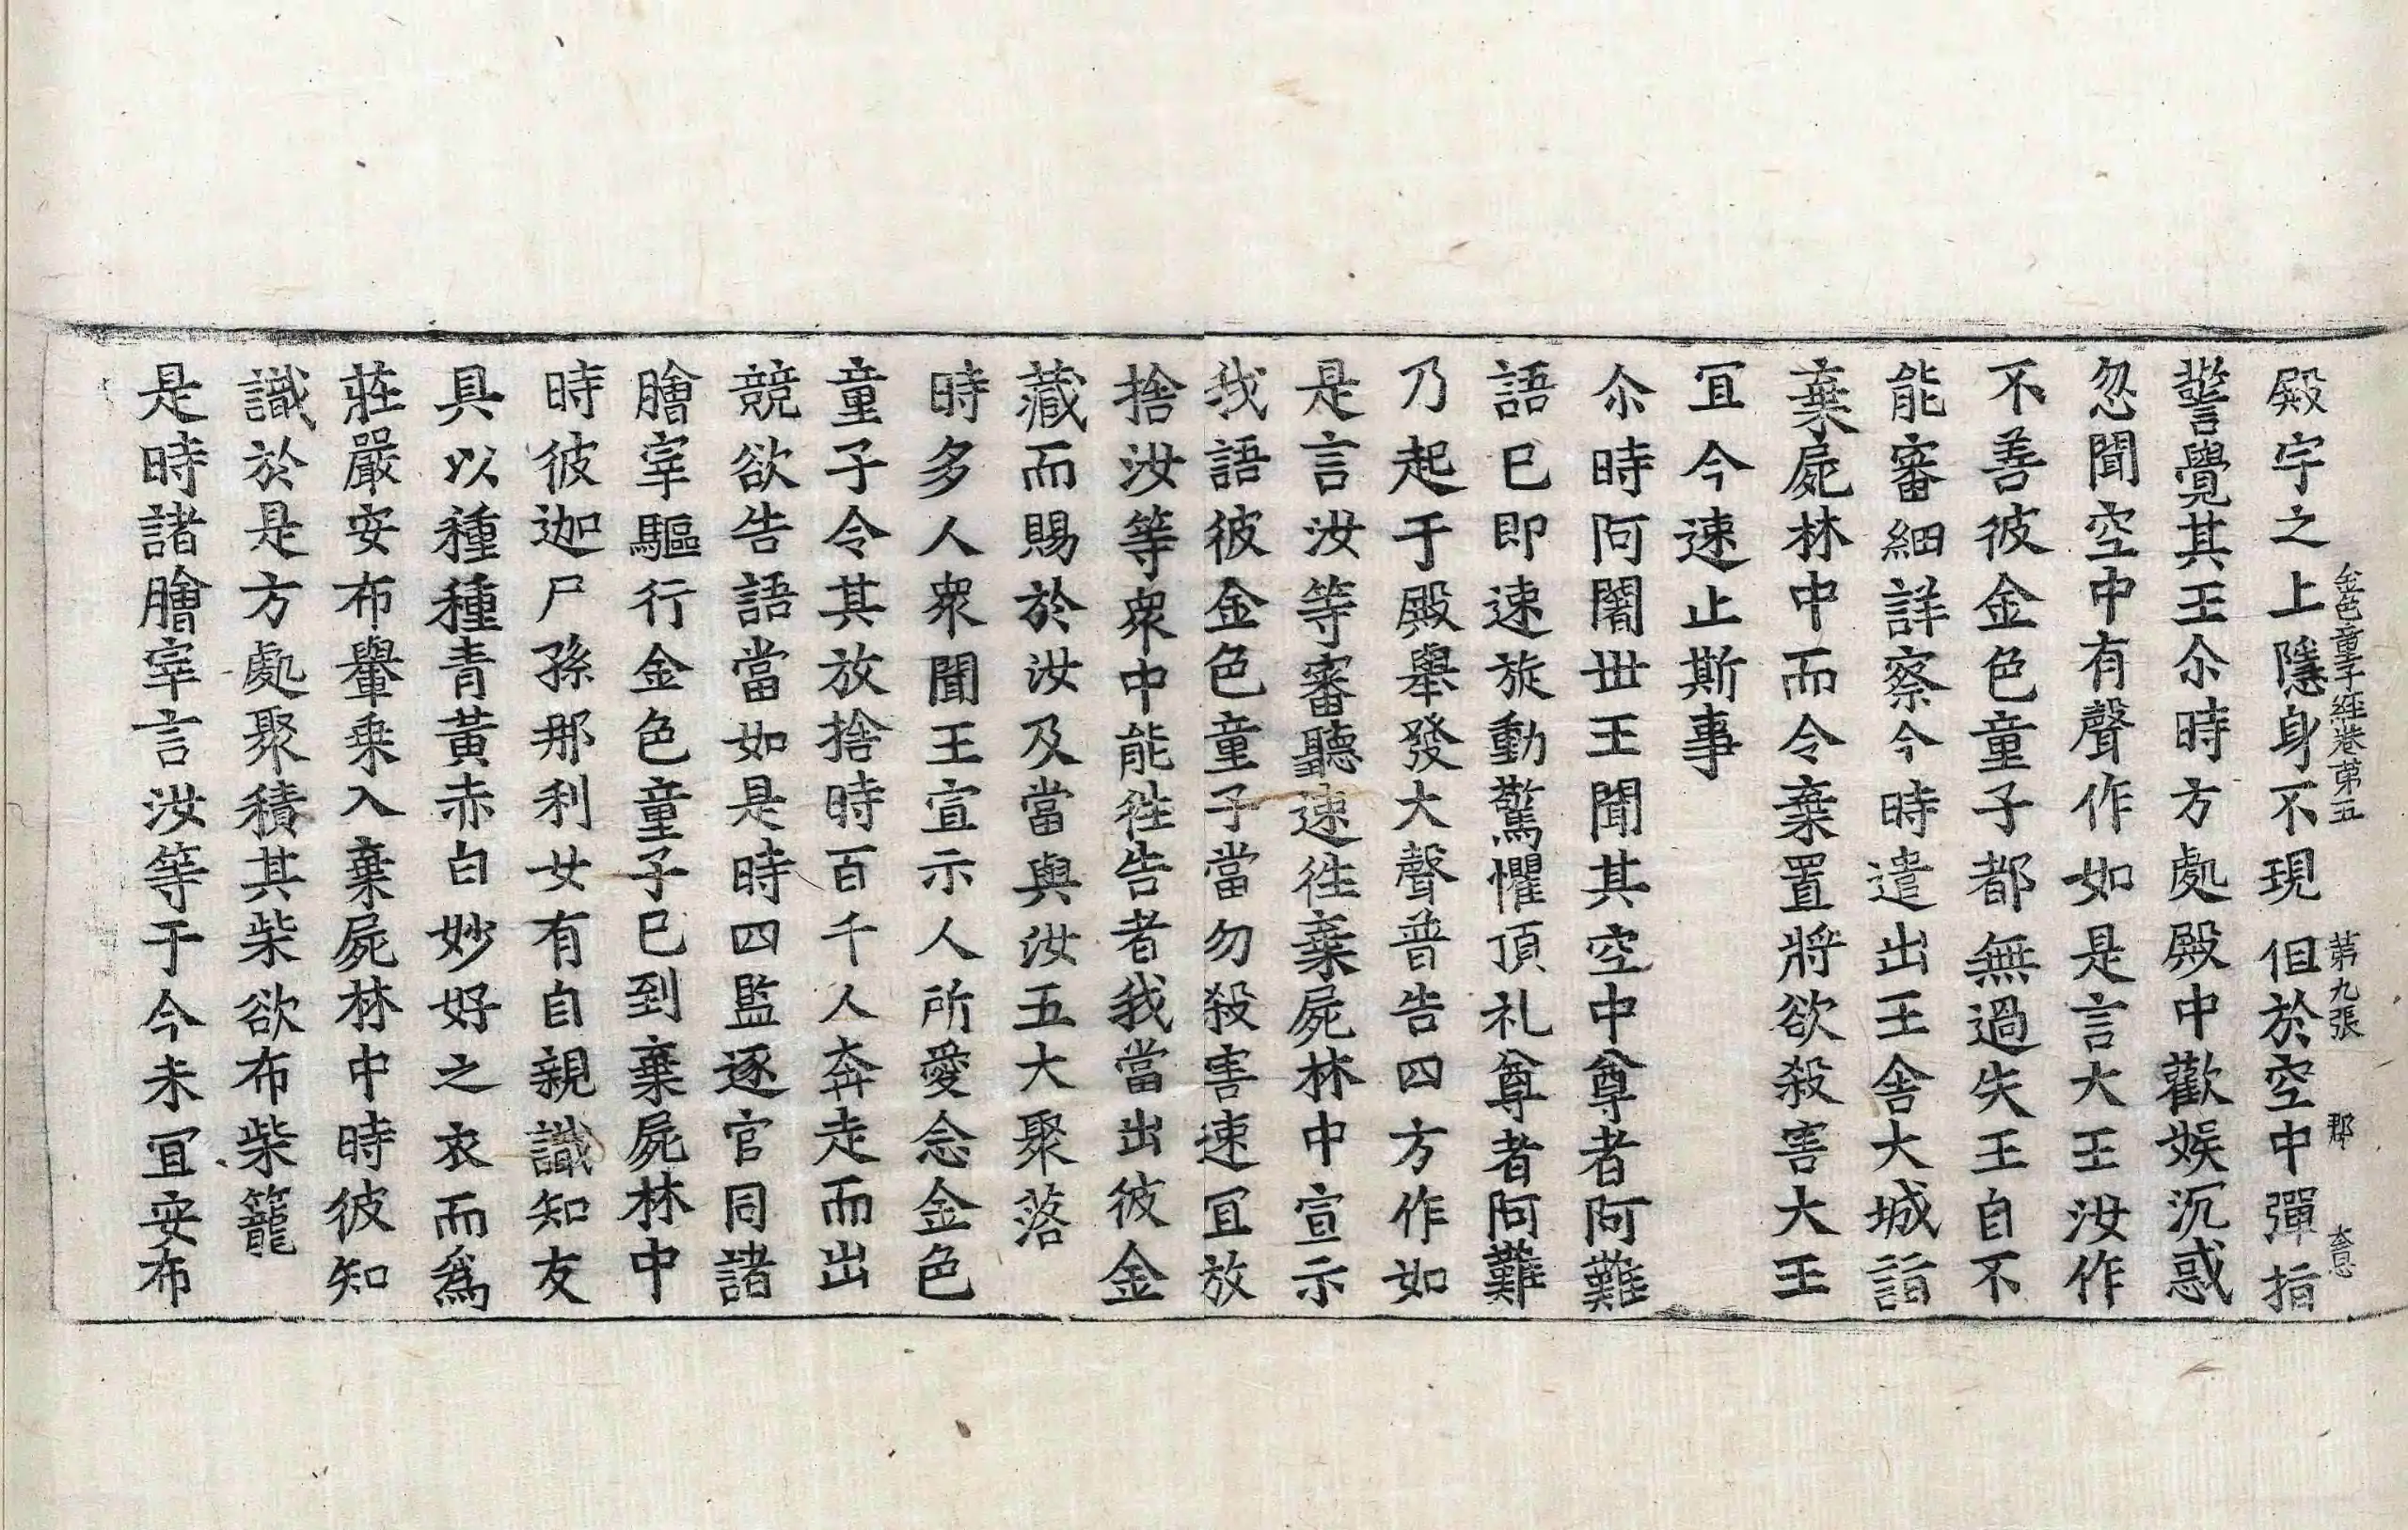 金色童子經卷第五　第九張　郡
殿宇之上隱身不現但於空中彈指
警覺其王尒時方處殿中歡娛沉惑
忽聞空中有聲作如是言大王汝作
不善彼金色童子都無過失王自不
能審細詳察今時遣出王舍大城詣
棄屍林中而令棄置將欲殺害大王
冝今速止斯事
尒時阿闍世王聞其空中尊者阿難
語已即速旋動驚懼頂礼尊者阿難
乃起于殿舉發大聲普告四方作如
是言汝等審聽速徃棄屍林中宣示
我語彼金色童子當勿殺害速冝放
捨汝等衆中能徃告者我當出彼金
藏而賜於汝及當與汝五大聚落
時多人衆聞王宣示人所愛念金色
童子令其放捨時百千人奔走而出
競欲告語當如是時四監逐官同諸
膾宰驅行金色童子已到棄屍林中
時彼迦尸孫那利女有自親識知友
具以種種青黃赤白妙好之衣而爲
莊嚴安布轝乗入棄屍林中時彼知
識於是方處聚積其柴欲布柴籠
是時諸膾宰言汝等于今未冝安布